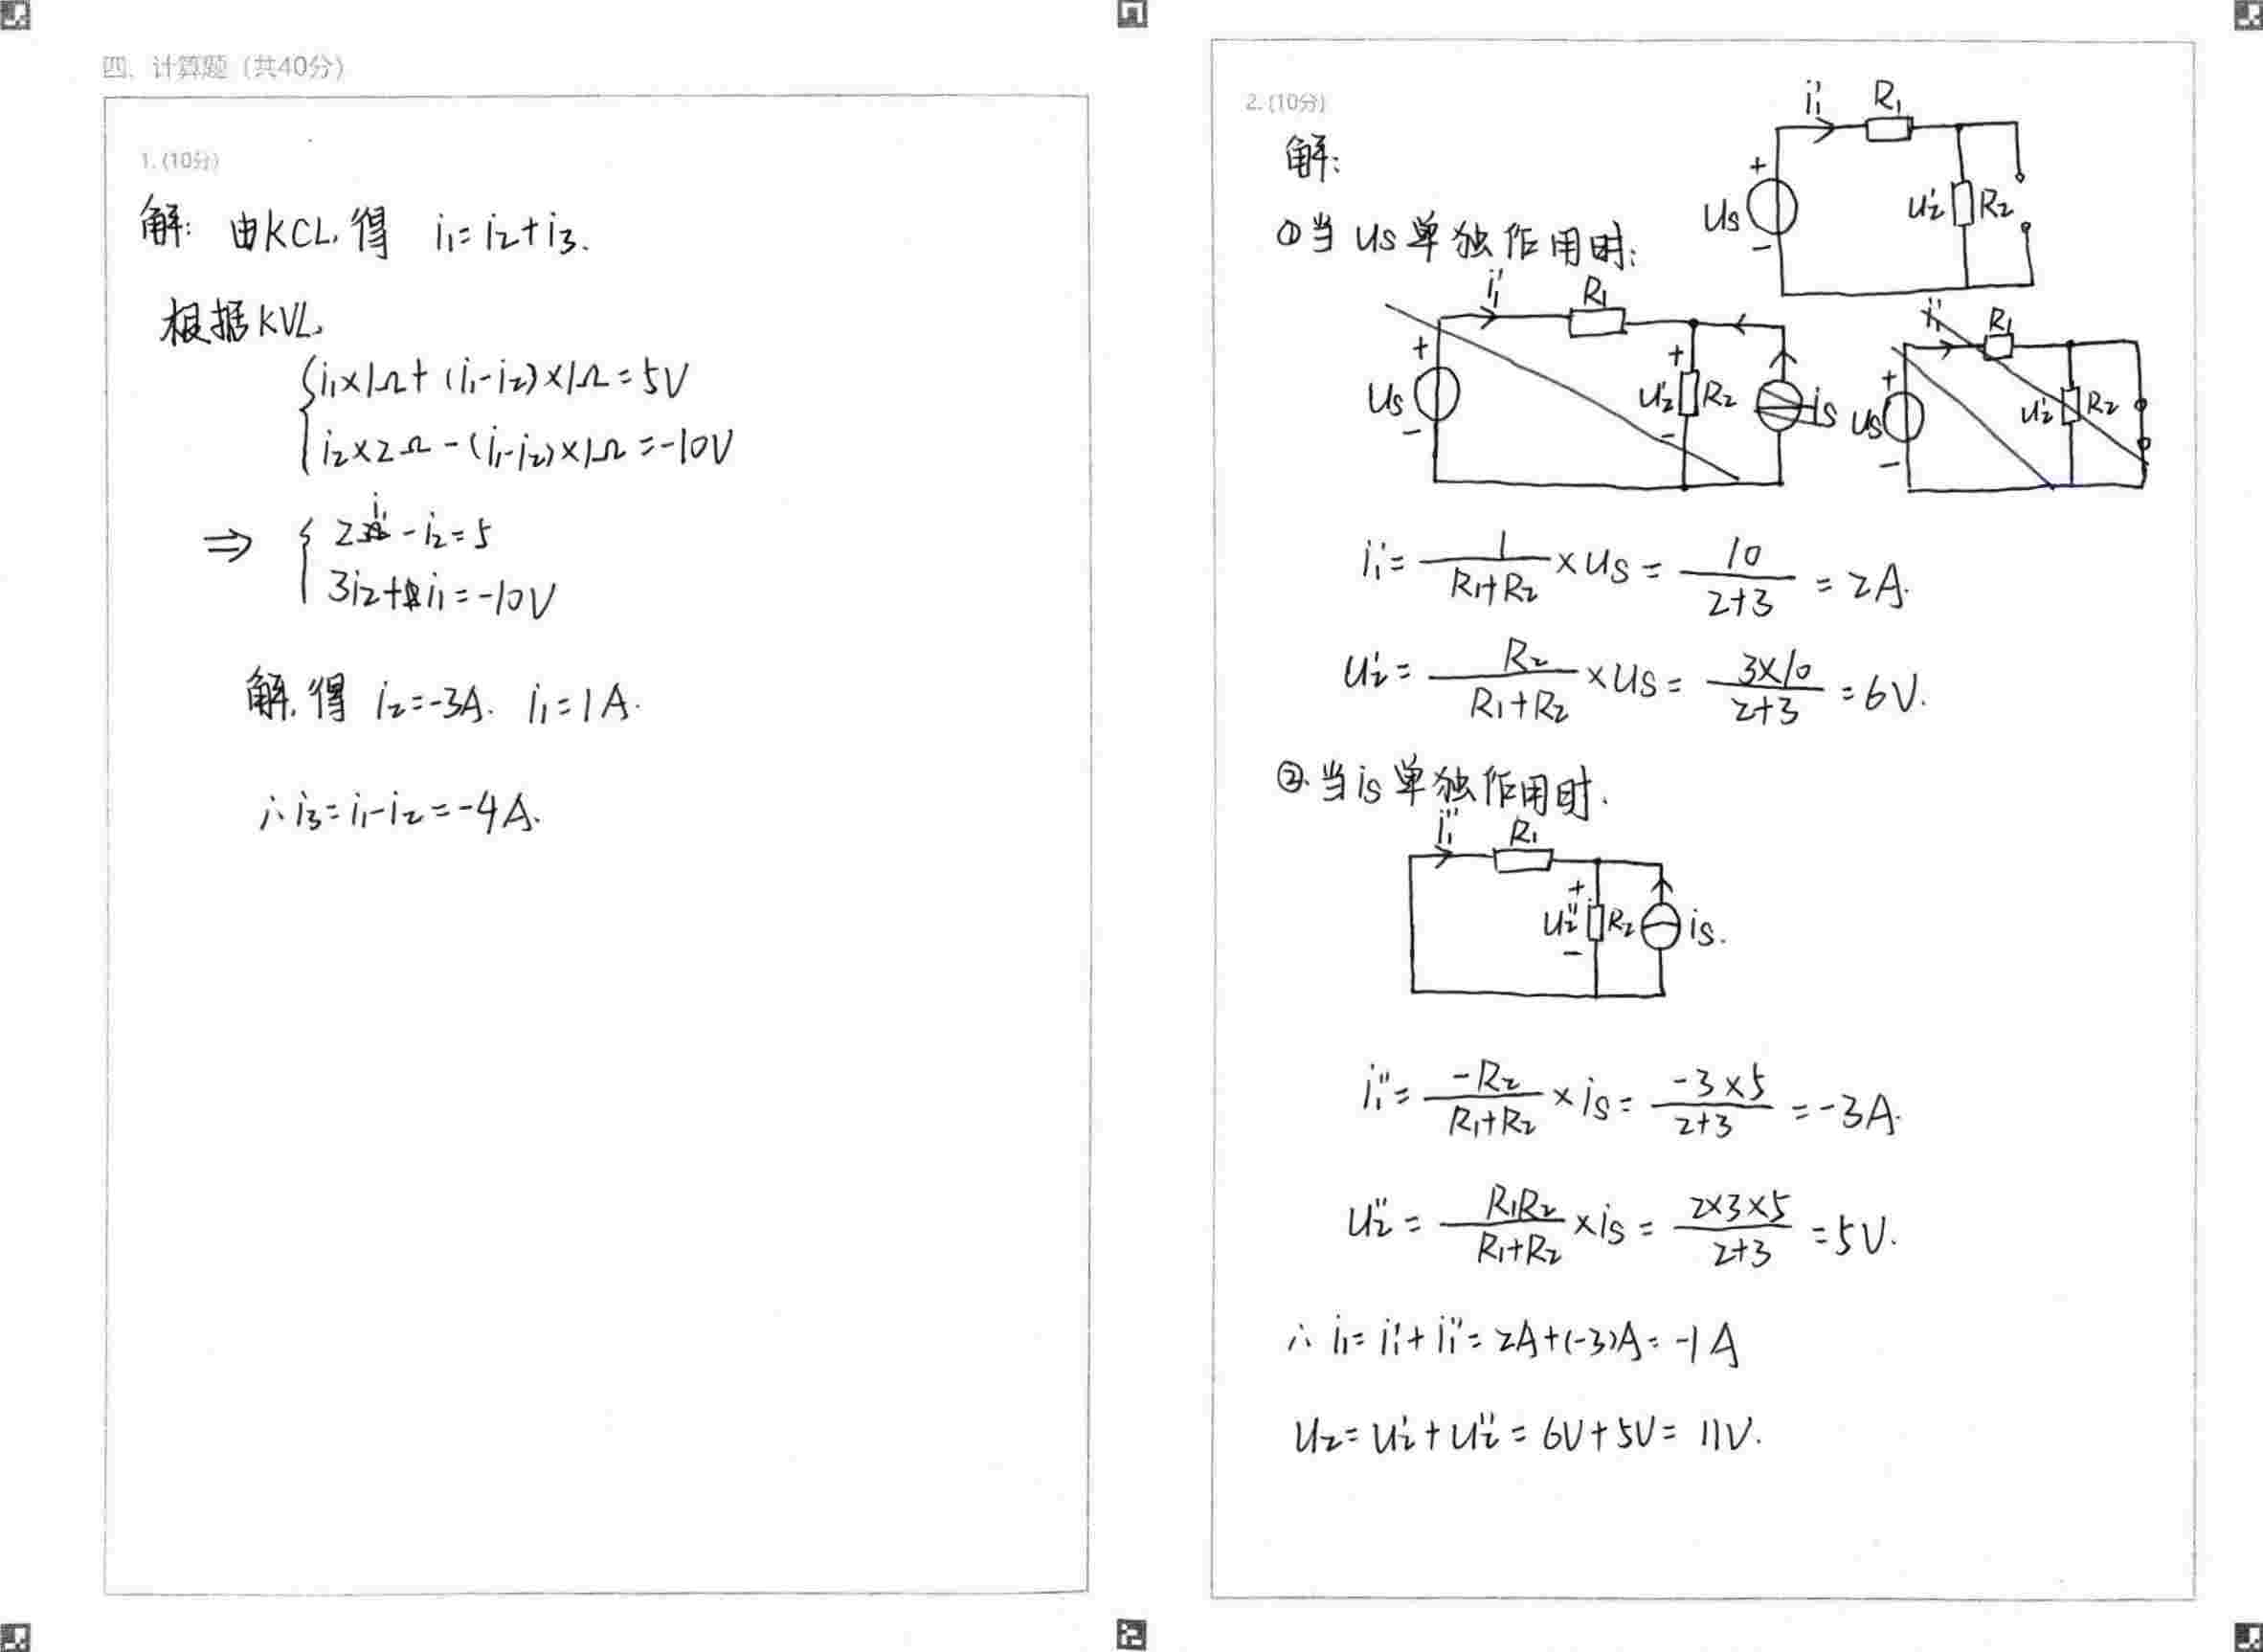 四、计算题（共40分）
1.(10分)
解: 由KCL, 得 i₁=i₂+i₃.
根据KVL,
i₁×1Ω+(i₁-i₂)×1Ω=5V
i₂×2Ω-(i₁-i₂)×1Ω=-10V
⇒ 2i₁-i₂=5
3i₂+i₁=-10V
解, 得 i₂=-3A. i₁=1A.
∴i₃=i₁-i₂=-4A.
2.(10分)
解:
i₁' R₁
+ Us - u₂' R₂
①当us单独作用时:
i₁' R₁
+ Us - + u₂' R₂ - is
i₁' R₁
+ Us - u₂' R₂
i₁'=1/(R₁+R₂)×us=10/(2+3)=2A.
u₂'=R₂/(R₁+R₂)×us=(3×10)/(2+3)=6V.
②.当is单独作用时.
i₁'' R₁
+ u₂'' R₂ - is.
i₁''=-R₂/(R₁+R₂)×is=(-3×5)/(2+3)=-3A.
u₂''=R₁R₂/(R₁+R₂)×is=(2×3×5)/(2+3)=5V.
∴ i₁=i₁'+i₁''=2A+(-3)A=-1A
u₂=u₂'+u₂''=6V+5V=11V.